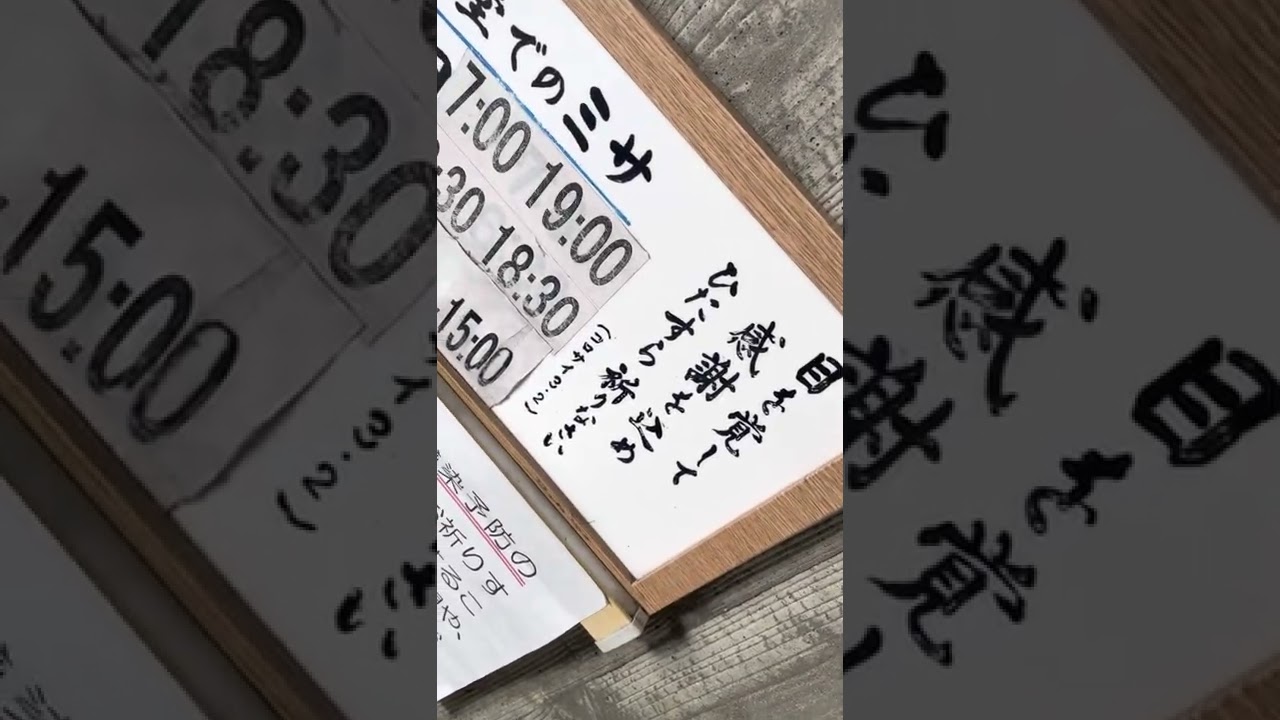 でのミサ
7:00 19:00
:30 18:30
15:00
目を覚して
感謝を込め
ひたすら祈りなさい
(コロサイ3:2)
染予防の
祈らす
るこ
や、